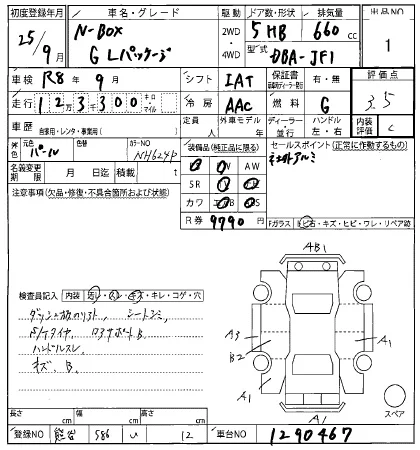 初度登録年月 車名・グレード 駆動 ドア数・形状 排気量 出品NO
25/9月 N-BOX 2WD・4WD 5HB 660cc 1
G Lパッケージ 型式 DBA-JF1
車検 R8年9月 シフト IAT 保証書 有・無 評価点
走行 123300 キロ・マイル 冷房 AAC 燃料 G 3.5
車歴 自家用・レンタ・事業用( ) 定員 人 外車モデル 年 ディーラー・並行 ハンドル 左・右 内装評価 C
外色 元色 パール 色替 カラーNO NH624P 装備品(純正品に限る) セールスポイント(正常に作動するもの)
名義変更期限 月 日迄 積載 t PW AW
注意事項(欠品・修復・不具合箇所および状態) SR AS
カワ
R券 9790 円 Fガラス ヒ石・キズ・ヒビ・ワレ・リペア跡
AB1
検査員記入 内装 汚レ・スレ・キズ・キレ・コゲ・穴
シートシミ
A3 A1
B2
ハンドルスレ
キズ、B.
A1 A1 スペア
長さ cm 幅 cm 高さ cm
登録NO 熊谷 586 い 12 車台NO 1290467